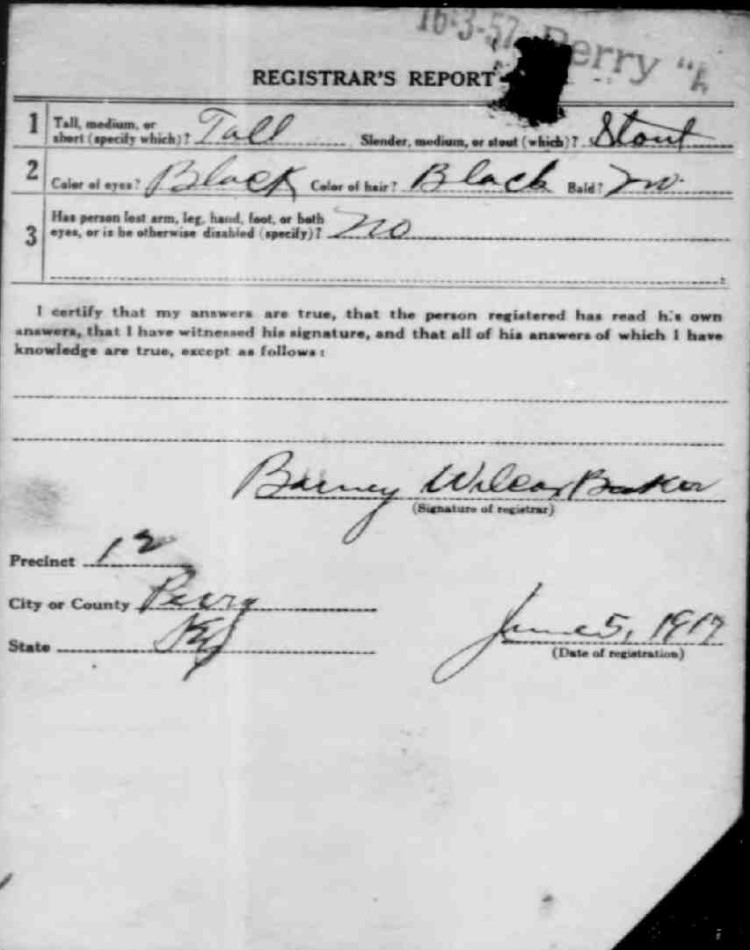 16-3-57 Perry "A
REGISTRAR'S REPORT
1 Tall, medium, or short (specify which)? Tall Slender, medium, or stout (which)? Stout
2 Color of eyes? Black Color of hair? Black Bald? No
3 Has person lost arm, leg, hand, foot, or both
eyes, or is he otherwise disabled (specify)? No
I certify that my answers are true, that the person registered has read his own
answers, that I have witnessed his signature, and that all of his answers of which I have
knowledge are true, except as follows:
Barney Wilcox Baker
(Signature of registrar)
Precinct 12
City or County Perry
State Ky
June 5, 1917
(Date of registration)